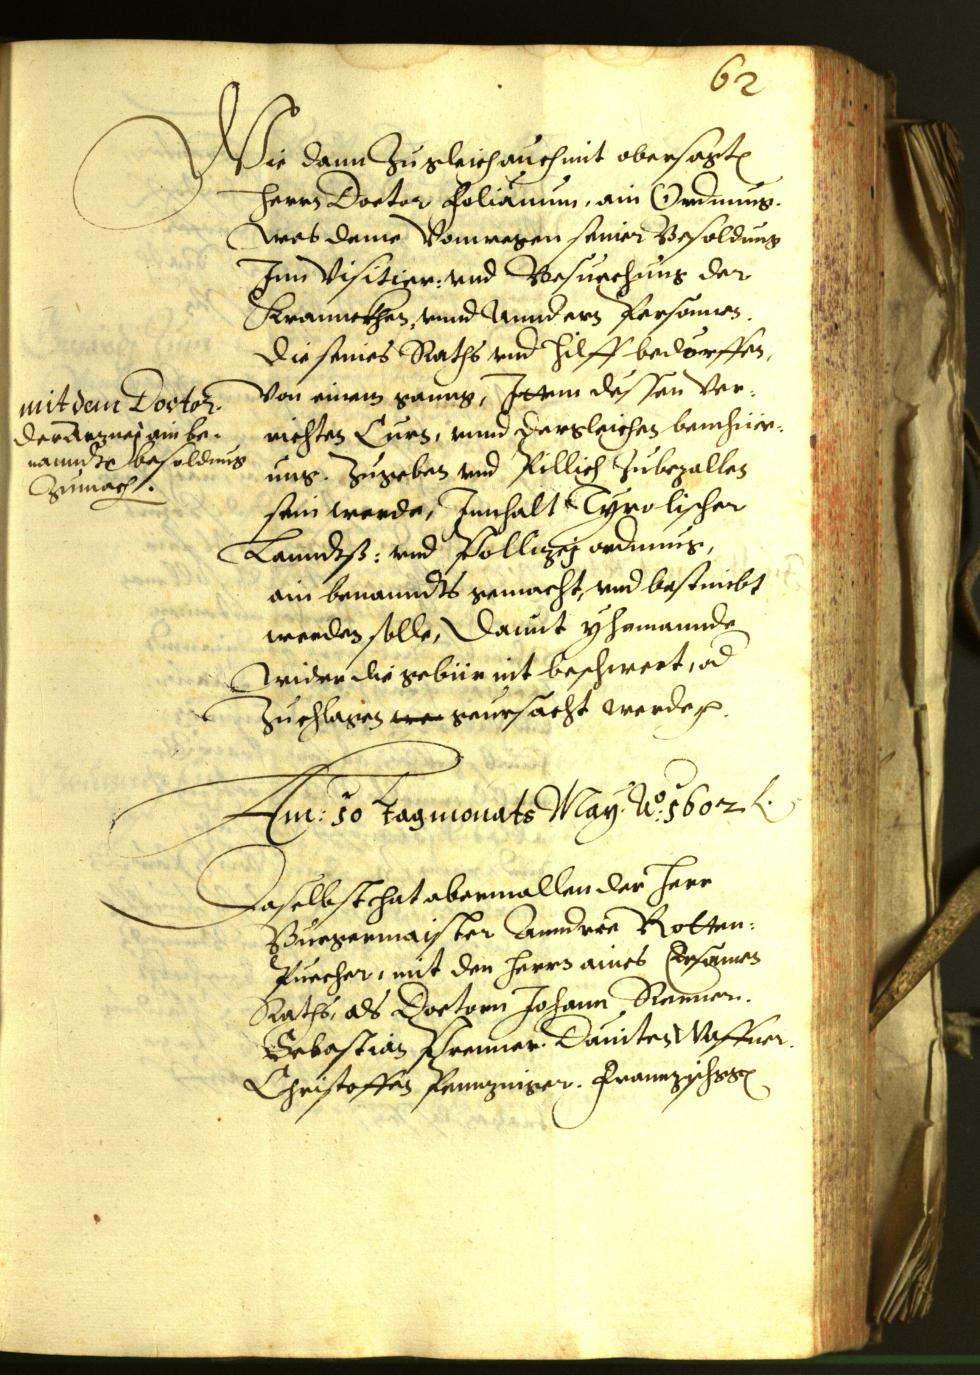 62
Wie dann Zugleich auch mit obersagtn
Herrn Doctor Folianum, ain Ordnung.
was deme Vonwegen seiner Besoldung
Inn Visitier: vnd Besuechung der
Krannckhen, vnnd Anndern Personen.
die seines Raths vnd Hilff bedürffen,
Von einem ganng, Jttem dessen Ver:
richten Curn, vnnd dergleichen bemhüe:
ung. Zugeben vnd Pillich Zubezallen
sein werde, Jnnhalt Tyrolischer
Lanndtß: vnd Pollizej ordnung,
ain benanndts gemacht, vnd bestimbt
werden solle, Damit yhemannde
wider die gebür nit beschwert, od
Zuchlagen geursacht werden.
mit dem Doctor
der Arznej ain be-
nanndte besoldung
Zumach.
Am: 10 Tag monats May. Ao: 1602
Daselbst hat abermallen der Herr
Burgermaister Anndree Rotten:
Puecher, mit den Herrn aines Ersamen
Raths, als Doctorn Johann Renner.
Sebastian Prenner. Dauiten Waffner.
Christoffen Pennzinger. Frannzischgg